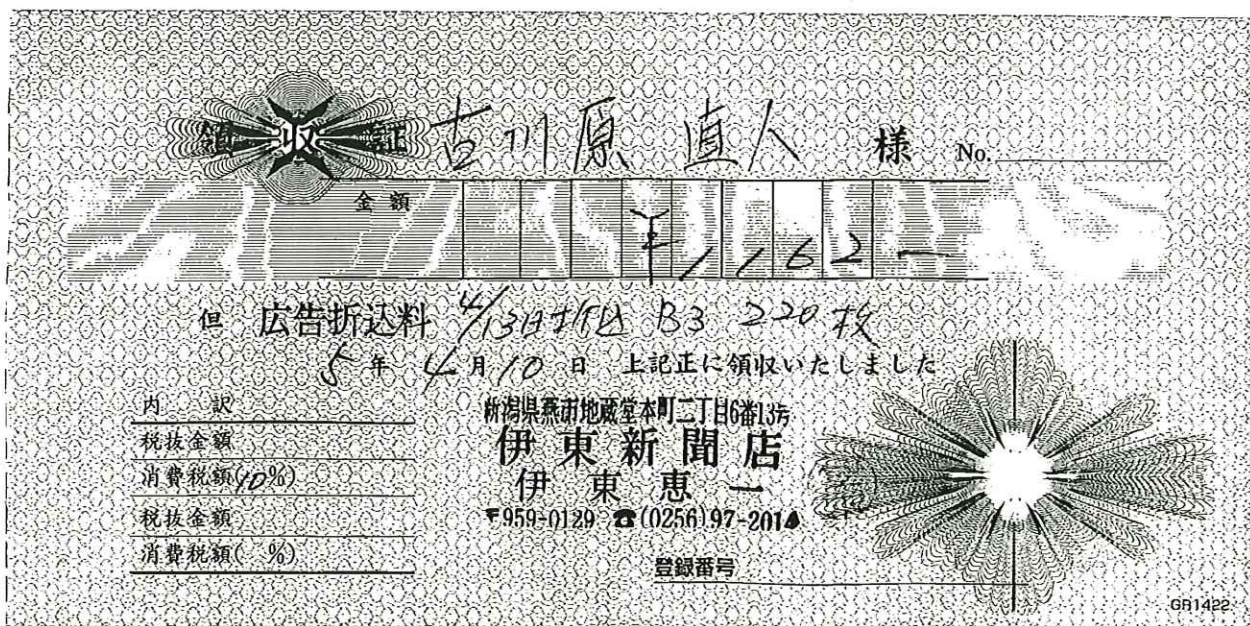 領収証 古川原 直人 様 No.
金額 ¥1162-
但 広告折込料 4/13日折込 B3 220枚
5年 4月10日 上記正に領収いたしました
内 訳
税抜金額
消費税額(10%)
税抜金額
消費税額( %)
新潟県燕市地蔵堂本町二丁目6番13号
伊東新聞店
伊東恵一
〒959-0129 ☎(0256)97-2014
登録番号
GR1422